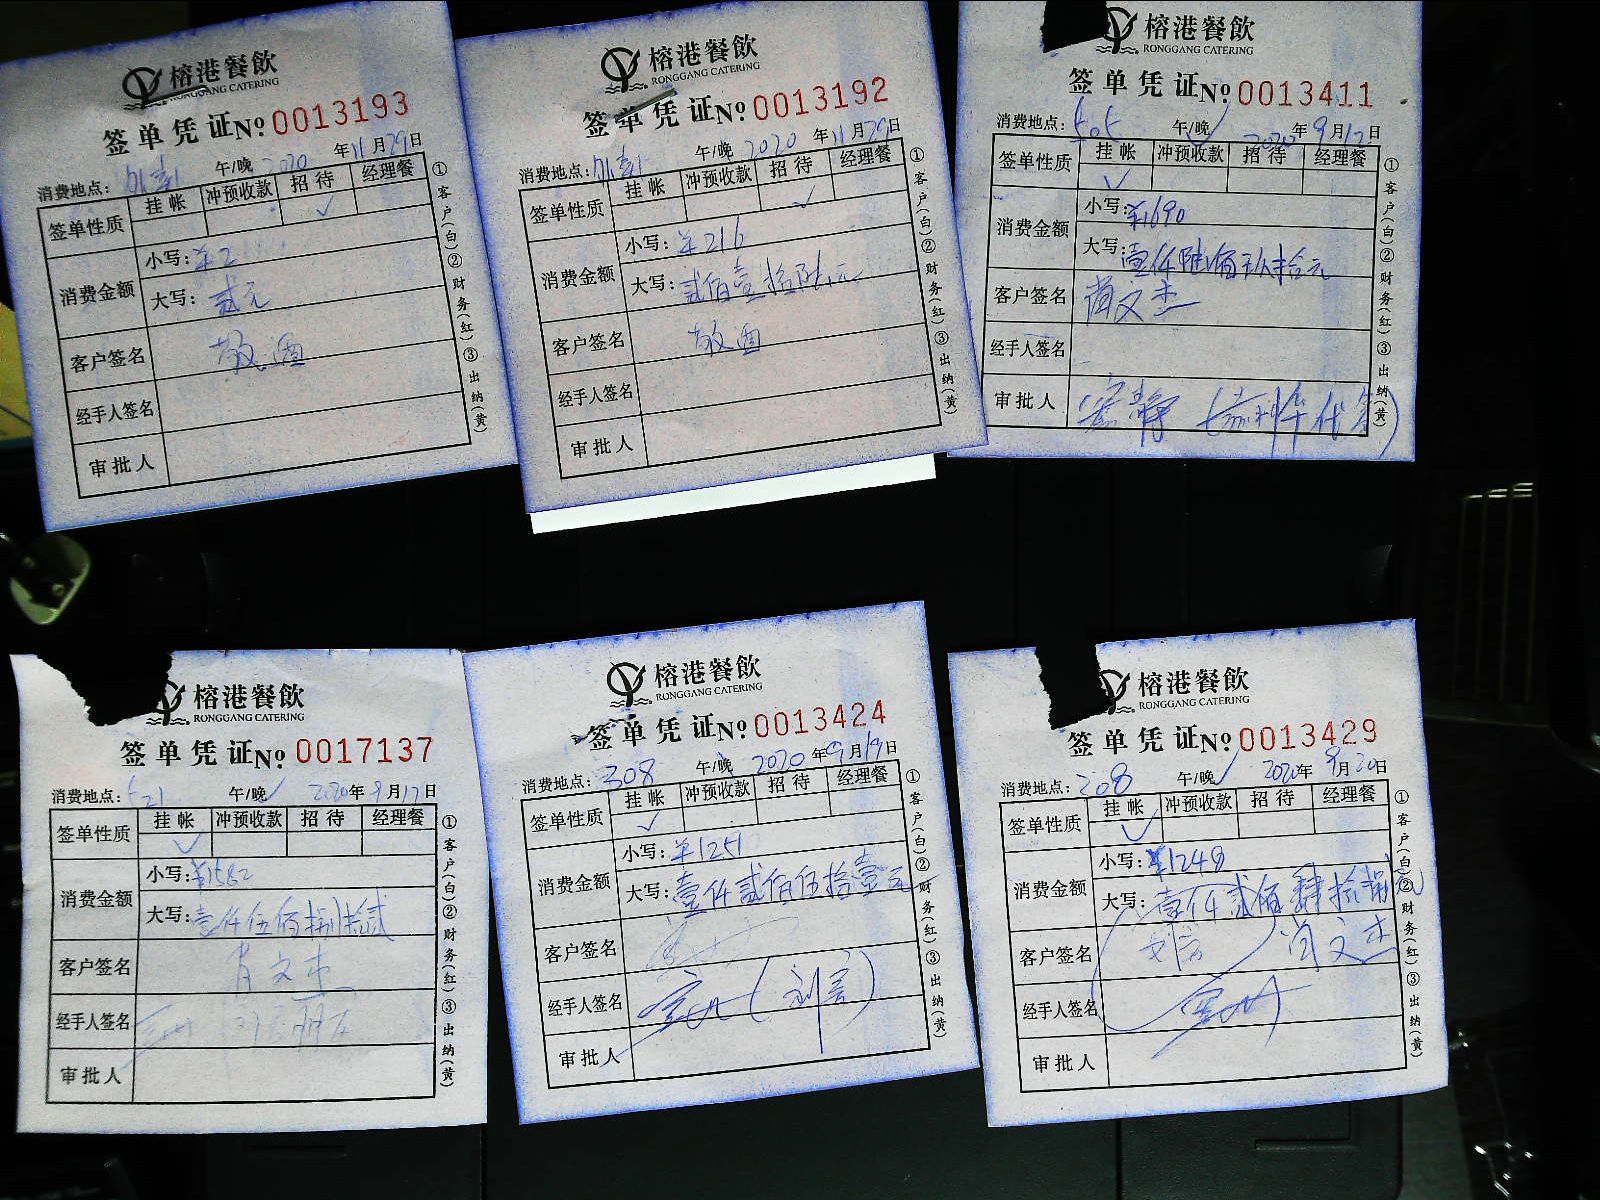 榕港餐飲
RONGGANG CATERING
签单凭证 No 0013193
消费地点： 午/晚 2020年11月29日
签单性质 挂帐 冲预收款 招待 经理餐
✓
消费金额 小写：¥2
大写：贰元
客户签名 敬酒
经手人签名
审批人
①客户(白)②财务(红)③出纳(黄)
榕港餐飲
RONGGANG CATERING
签单凭证 No 0013192
消费地点： 午/晚 2020年11月29日
签单性质 挂帐 冲预收款 招待 经理餐
✓
消费金额 小写：¥216
大写：贰佰壹拾陆元
客户签名 敬酒
经手人签名
审批人
①客户(白)②财务(红)③出纳(黄)
榕港餐飲
RONGGANG CATERING
签单凭证 No 0013411
消费地点：505 午/晚✓ 2020年9月12日
签单性质 挂帐 冲预收款 招待 经理餐
✓
消费金额 小写：¥1690
大写：壹仟陆佰玖拾元
客户签名 肖文杰
经手人签名
审批人
①客户(白)②财务(红)③出纳(黄)
榕港餐飲
RONGGANG CATERING
签单凭证 No 0017137
消费地点：521 午/晚✓ 2020年9月17日
签单性质 挂帐 冲预收款 招待 经理餐
✓
消费金额 小写：¥1582
大写：壹仟伍佰捌拾贰
客户签名 肖文杰
经手人签名
审批人
①客户(白)②财务(红)③出纳(黄)
榕港餐飲
RONGGANG CATERING
签单凭证 No 0013424
消费地点：308 午/晚 2020年9月19日
签单性质 挂帐 冲预收款 招待 经理餐
✓
消费金额 小写：¥1251
大写：壹仟贰佰伍拾壹元
客户签名
经手人签名
审批人
①客户(白)②财务(红)③出纳(黄)
榕港餐飲
RONGGANG CATERING
签单凭证 No 0013429
消费地点：208 午/晚✓ 2020年9月20日
签单性质 挂帐 冲预收款 招待 经理餐
✓
消费金额 小写：¥1248
大写：壹仟贰佰肆拾捌元
客户签名 肖文杰
经手人签名
审批人
①客户(白)②财务(红)③出纳(黄)